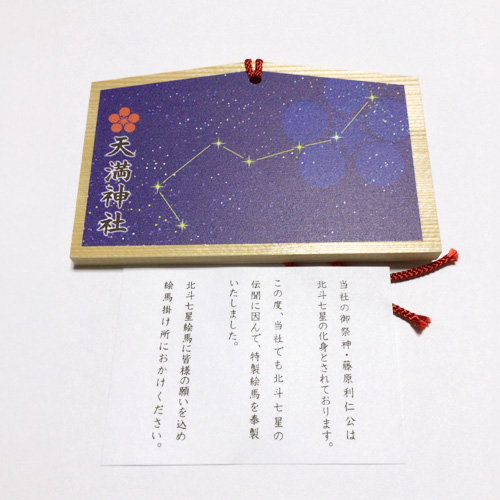 天満神社
当社の御祭神・藤原利仁公は
北斗七星の化身とされております。
この度、当社でも北斗七星の
伝聞に因んで、特製絵馬を奉製
いたしました。
北斗七星絵馬に皆様の願いを込め
絵馬掛け所におかけください。